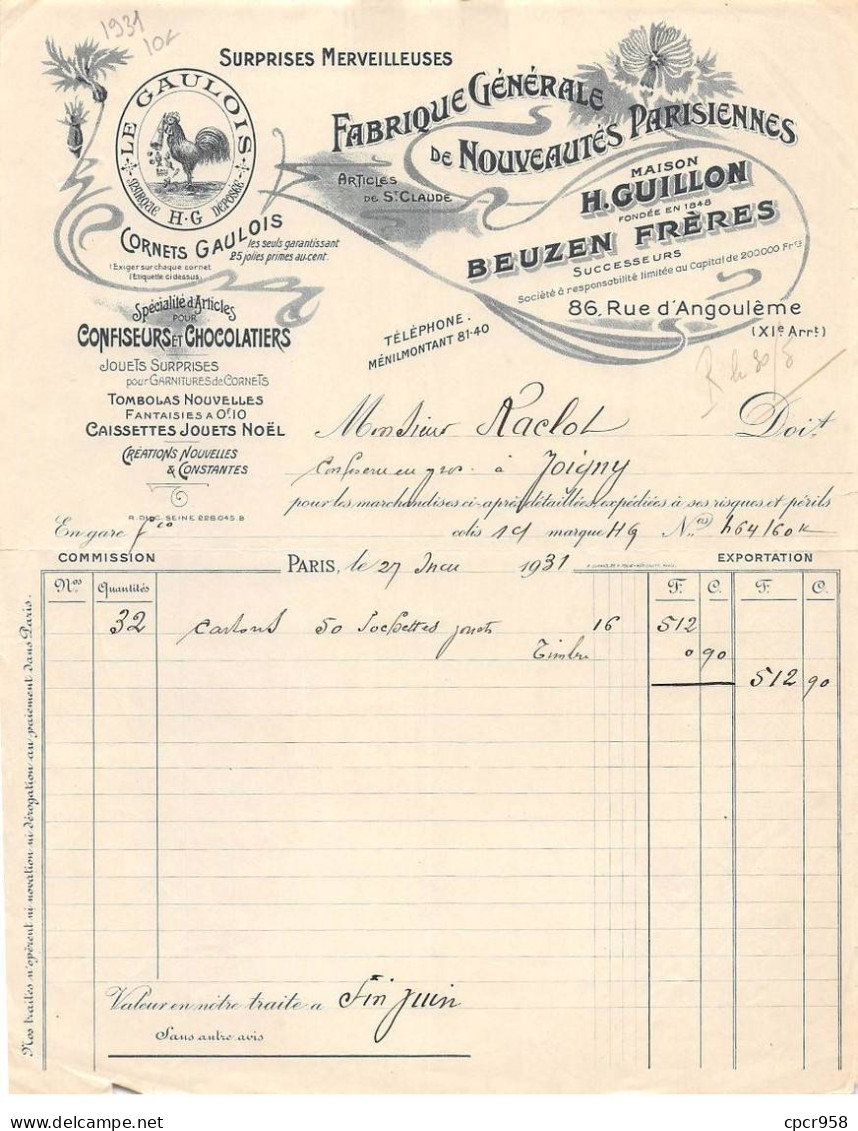 1931
10f
SURPRISES MERVEILLEUSES
FABRIQUE GÉNÉRALE
DE NOUVEAUTÉS PARISIENNES
LE GAULOIS
MARQUE H·G DEPOSÉE
ARTICLES
DE ST CLAUDE
MAISON
H. GUILLON
FONDÉE EN 1848
BEUZEN FRÈRES
SUCCESSEURS
Société à responsabilité limitée au Capital de 200.000 Frcs
86, Rue d'Angoulême
(XIe Arrt)
CORNETS GAULOIS les seuls garantissant
25 jolies primes au cent.
(Exiger sur chaque cornet
l'Etiquette ci dessus)
Spécialité d'Articles
POUR
CONFISEURS ET CHOCOLATIERS
TÉLÉPHONE.
MÉNILMONTANT 81-40
JOUETS SURPRISES
pour GARNITURES de CORNETS
TOMBOLAS NOUVELLES
FANTAISIES A 0f.10
CAISSETTES JOUETS NOËL
CRÉATIONS NOUVELLES
& CONSTANTES
R. DU C. SEINE 228.045 B
Monsieur Raclot Doit
à Joigny
pour les marchandises ci-après détaillées, expédiées à ses risques et périls
En gare colis 19 marque HG Nos 464/60
COMMISSION PARIS, le 27 1931 EXPORTATION
Nos Quantités F. C. F. C.
32 cartons 50 pochettes jouets 16 512
Timbre 0 90
512 90
Valeur en nôtre traite a Fin juin
Sans autre avis
Nos traites n'opèrent ni novation ni dérogation au paiement dans Paris.
cpcr958